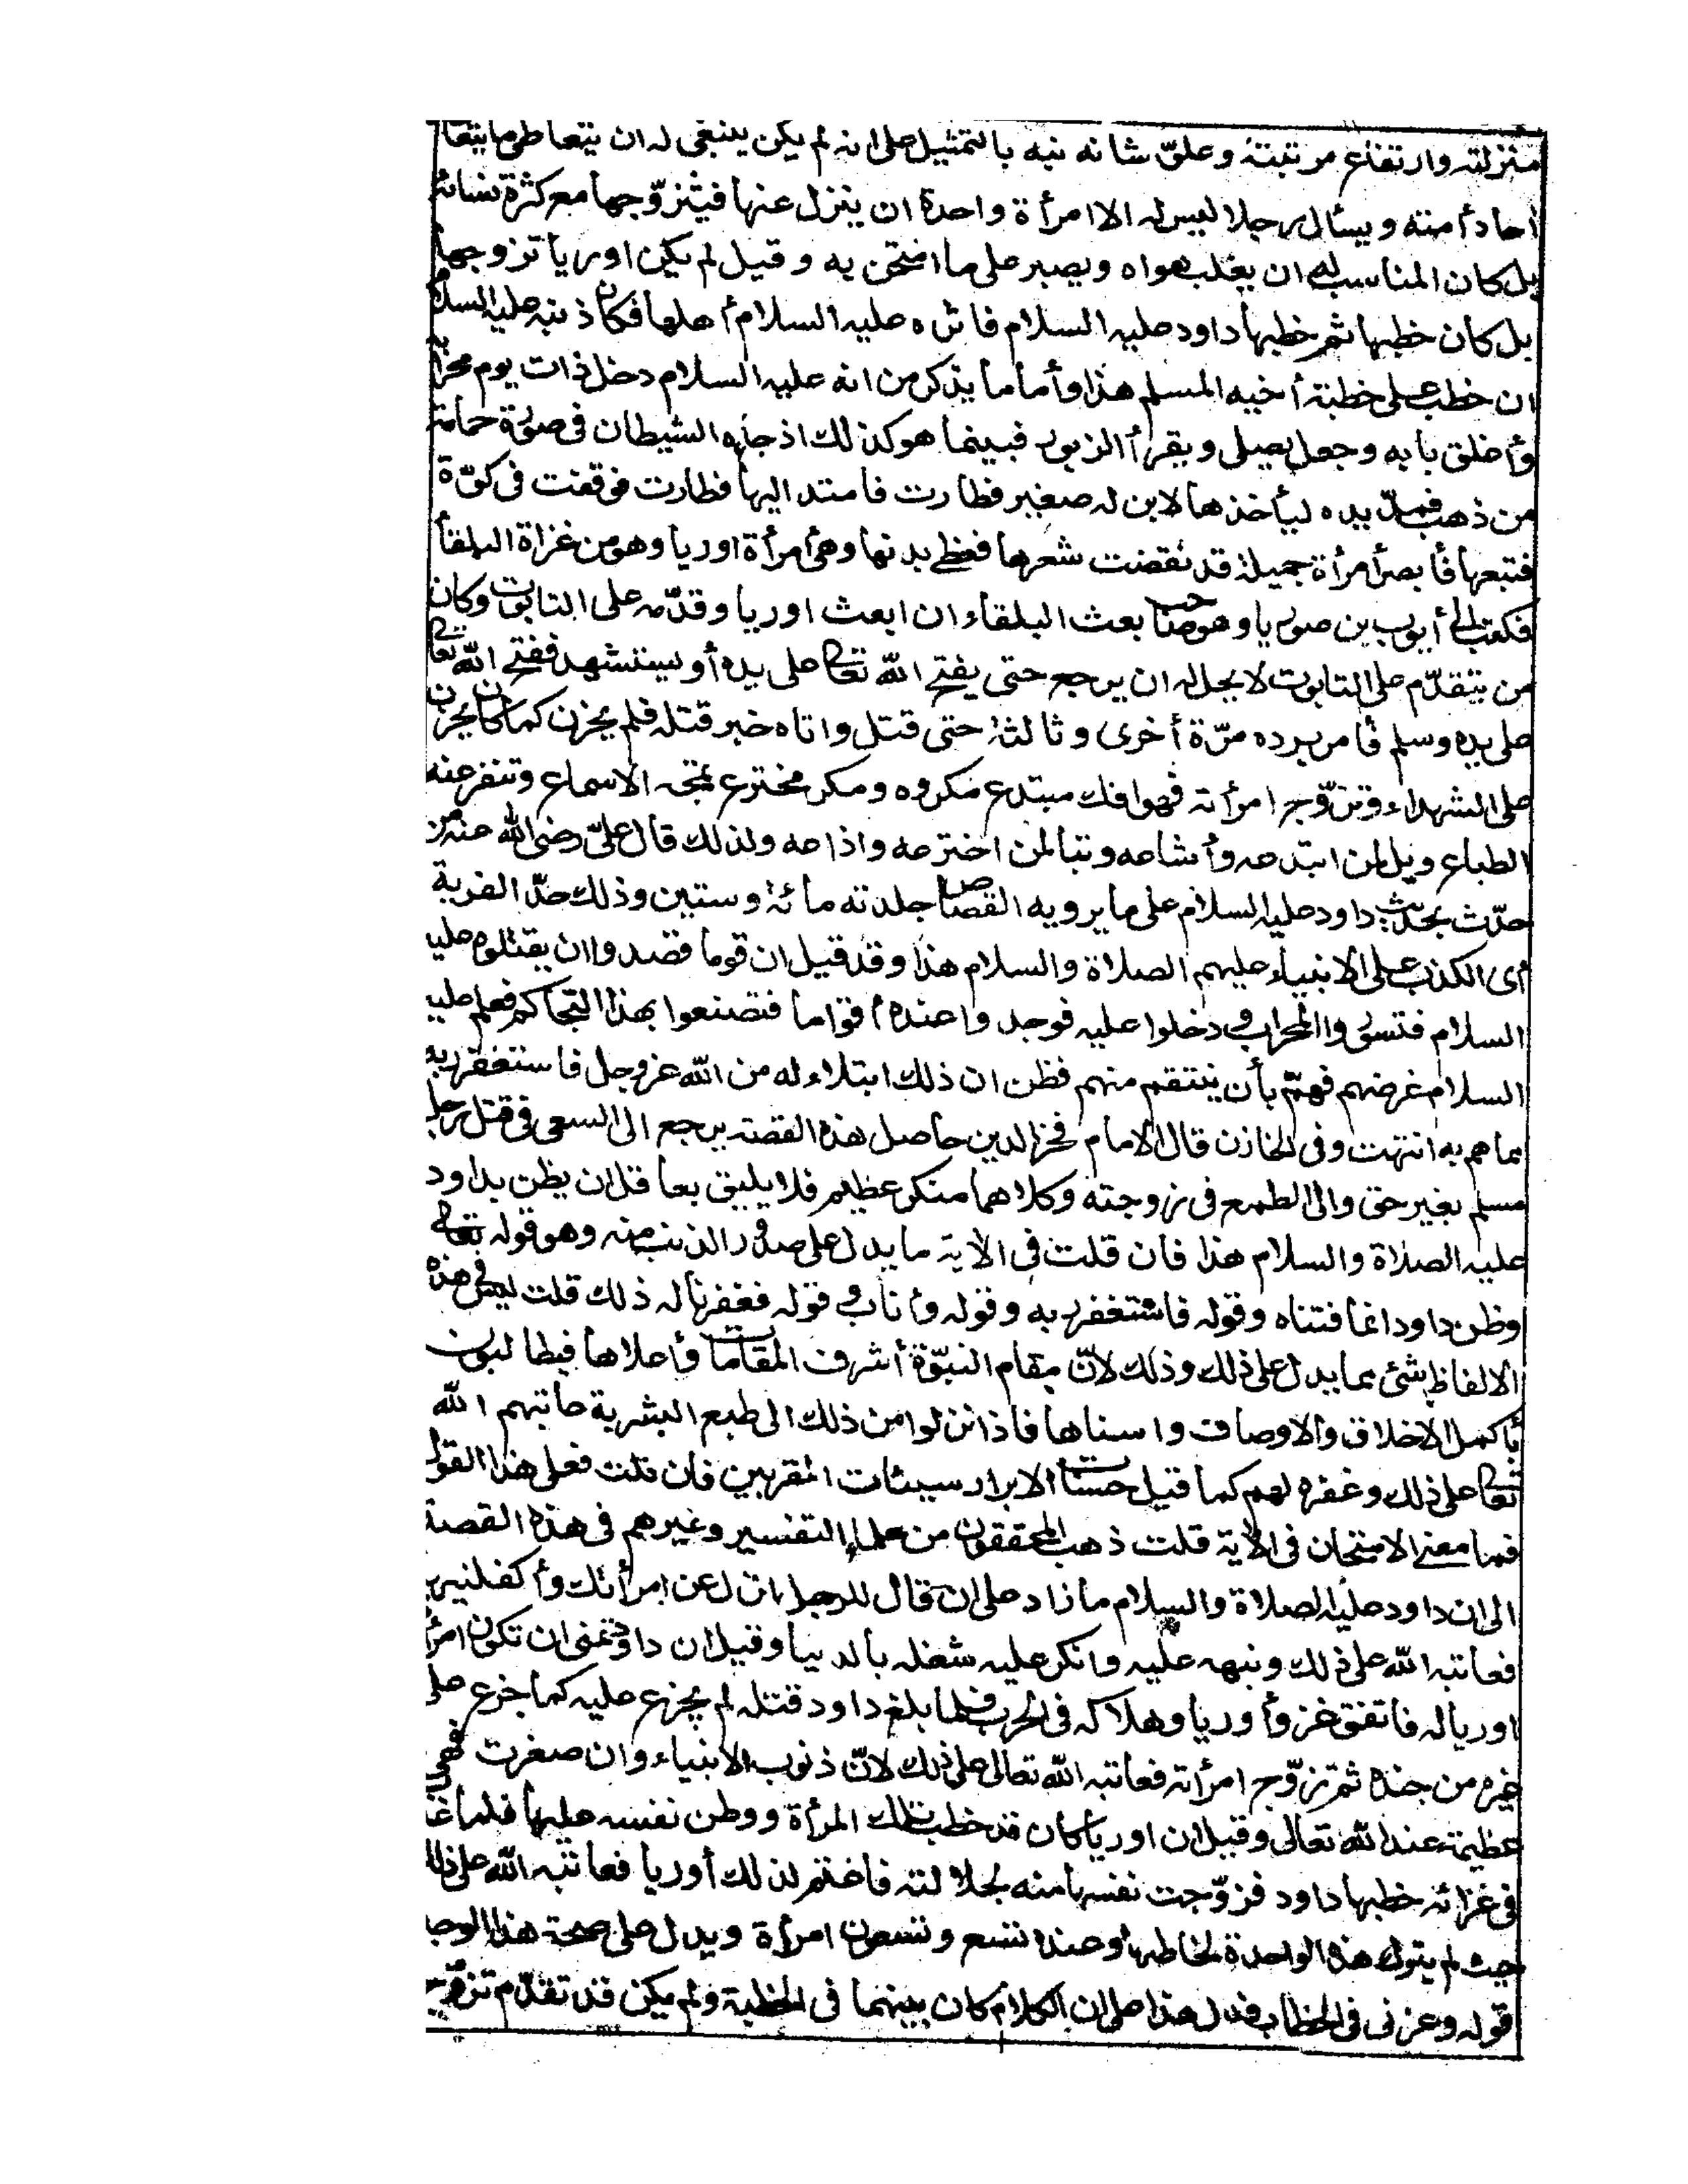 منزلته وارتفاع مرتبته وعلوّ شانه نبه بالتمثيل على انه لم يكن ينبغى له ان يتعاطى ما يتعا
احاد أمته ويسأل رجلا ليس له الا امرأة واحدة ان ينزل عنها فيتزوّجها مع كثرة نسائه
بل كان المناسب له ان يغلب هواه ويصبر على ما امتحن به وقيل لم يكن اوريا تزوجها
بل كان خطبها ثم خطبها داود عليه السلام فاثره عليه السلام أهلها فكان ذنبه عليه السلام
ان خطب على خطبة أخيه المسلم هذا وأما ما يذكر من انه عليه السلام دخل ذات يوم محرابه
وأغلق بابه وجعل يصلى ويقرأ الزبور فبينما هو كذلك اذ جاءه الشيطان فى صورة حمامة
من ذهب فمدّ يده ليأخذها لابن له صغير فطارت فامتد اليها فطارت فوقفت فى كوّة
فتبعها فأبصر أمرأة جميلة قد نقضت شعرها فغطى بدنها وهى أمرأة اوريا وهو من غزاة البلقأ
فكتب الى أيوب بن صوريا وهو صاحب بعث البلقاء ان ابعث اوريا وقدّمه على التابوت وكان
من يتقدّم على التابوت لا يحل له ان يرجع حتى يفتح الله تعالى على يده أو يستشهد ففتح الله تعالى
على يده وسلم فأمر برده مرّة أخرى وثالثة حتى قتل واتاه خبر قتله فلم يحزن كما كان يحزن
على الشهداء وتزوّج امرأته فهو افك مبتدع مكروه ومكر مخترع تمجه الاسماع وتنفر عنه
الطباع ويل لمن ابتدعه وأشاعه وتبا لمن اخترعه واذاعه ولذلك قال علىّ رضى الله عنه من
حدّث بحديث داود عليه السلام على ما يرويه القصاص جلدته مائة وستين وذلك حدّ الفرية
أى الكذب على الانبياء عليهم الصلاة والسلام هذا وقد قيل ان قوما قصدوا ان يقتلوه عليه
السلام فتسوروا المحراب ودخلوا عليه فوجدوا عنده أقواما فتصنعوا بهذا التحاكم فعلم عليه
السلام غرضهم فهمّ بأن ينتقم منهم فظن ان ذلك ابتلاء له من الله عز وجل فاستغفر ربه
مما هم به انتهت وفى الخازن قال الامام فخر الدين حاصل هذه القصة يرجع الى السعى فى قتل رجل
مسلم بغير حق والى الطمع فى زوجته وكلاهما منكر عظيم فلا يليق بعاقل ان يظن بداود
عليه الصلاة والسلام هذا فان قلت فى الاية ما يدل على صدور الذنب منه وهو قوله تعالى
وظن داود انما فتناه وقوله فاستغفر ربه وقوله وأناب وقوله فغفرنا له ذلك قلت ليس فى هذه
الالفاظ شئ مما يدل على ذلك وذلك لانّ مقام النبوّة أشرف المقامات وأعلاها فيطالبون
بأكمل الاخلاق والاوصاف واسناها فاذا نزلوا من ذلك الى طبع البشرية عاتبهم الله
تعالى على ذلك وغفره لهم كما قيل حسنات الابرار سيئات المقربين فان قلت فعلى هذا القول
فما معنى الامتحان فى الاية قلت ذهب المحققون من علماء التفسير وغيرهم فى هذه القصة
الى ان داود عليه الصلاة والسلام ما زاد على ان قال للرجل انزل عن امرأتك وأكفلنيها
فعاتبه الله على ذلك ونبهه عليه وانكر عليه شغله بالدنيا وقيل ان داود تمنى ان تكون امرأة
اوريا له فاتفق غزو أوريا وهلاكه فى الحرب فلما بلغ داود قتله لم يجزع عليه كما جزع على
غيره من جنده ثم تزوّج امرأته فعاتبه الله تعالى على ذلك لانّ ذنوب الانبياء وان صغرت فهى
عظيمة عند الله تعالى وقيل ان اوريا كان قد خطب تلك المرأة ووطن نفسه عليها فلما غا
فى غزاته خطبها داود فزوّجت نفسها منه لجلالته فاغتم لذلك أوريا فعاتبه الله على ذلك
حيث لم يترك هذه الواحدة لخاطبها وعنده تسع وتسعون امرأة ويدل على صحة هذا الوجه
قوله وعزنى فى الخطاب فدل هذا على ان الكلام كان بينهما فى الخطبة ولم يكن قد تقدّم تزوّج